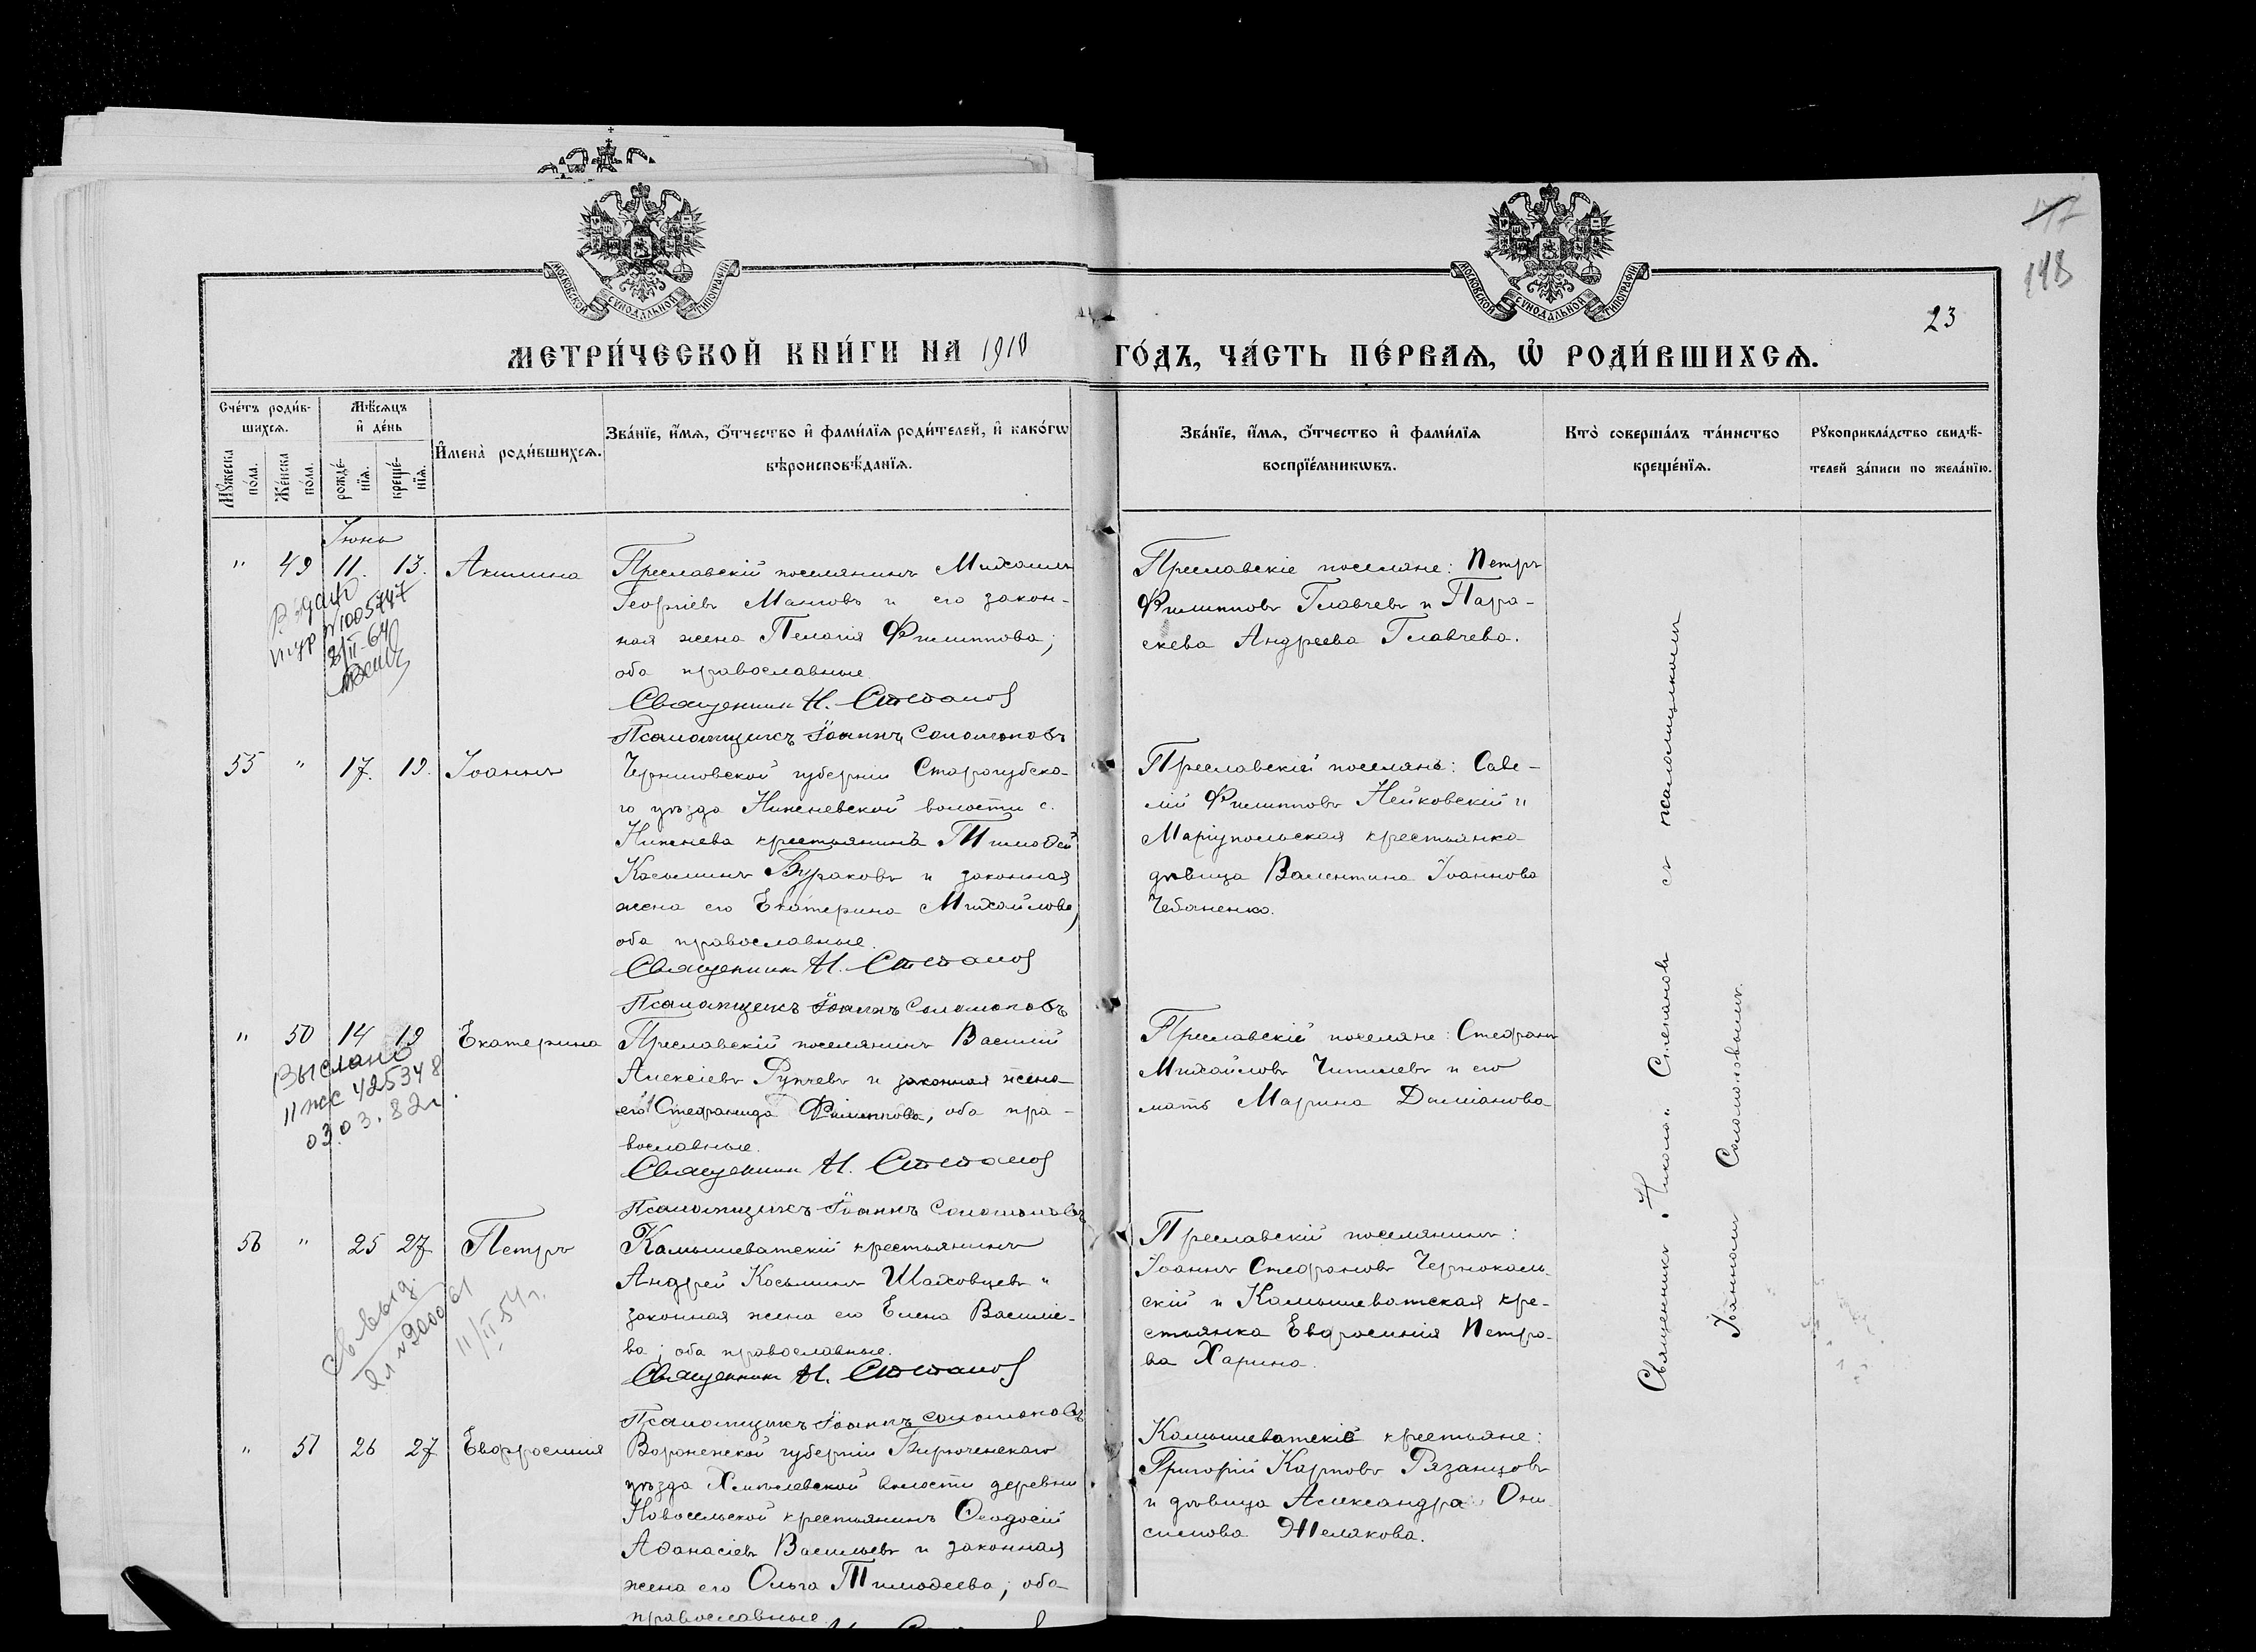 МОСКОВСКОЙ СУНОДАЛЬНОЙ ТИПОГРАФІИ
МОСКОВСКОЙ СУНОДАЛЬНОЙ ТИПОГРАФІИ
117
118
23
МЕТРИ́ЧЕСКОЙ КНИ́ГИ НА 1910 ГО́ДЪ, ЧА́СТЬ ПЕ́РВАѦ, Ѽ РОДИ́ВШИХСѦ.
Сче́тъ роди́в-
шихсѧ.
Мꙋ́жеска по́ла.
Же́нска по́ла.
Мѣ́сѧцъ
и҆ де́нь
рожде́-
нїѧ.
креще́-
нїѧ.
И҆мена̀ роди́вшихсѧ.
Зва́нїе, и҆́мѧ, ѻ҆́тчество и҆ фами́лїѧ роди́телей, и҆ како́гѡ
вѣроисповѣ́данїѧ.
Зва́нїе, и҆́мѧ, ѻ҆́тчество и҆ фами́лїѧ
воспрїе́мникѡвъ.
Кто̀ соверша́лъ та́инство
креще́нїѧ.
Рꙋкоприкла́дство свидѣ́-
телей за́писи по жела́нїю.
Іюнь
" 49 11. 13. Акилина
Преславскій поселянинъ Михаилъ
Георгіевъ Малловъ и его закон-
ная жена Пелагія Филиппова;
оба православные
Священник Н. Степанов
Псаломщикъ Іоаннъ Соломоновъ
Преславскіе поселяне: Петръ
Филипповъ Главчевъ и Пара-
скева Андреева Главчева.
Выдано
№ 1005747
8/II-64
55 " 17. 19. Іоаннъ
Черниговской губерніи Стародубска-
го уѣзда Нижневской волости с.
Нижнева крестьянинъ Тимофей
Косьминъ Бураковъ и законная
жена его Екатерина Михайлова,
оба православные.
Священник Н. Степанов
Псаломщикъ Іоаннъ Соломоновъ
Преславскій поселянъ: Саве-
лій Филипповъ Нейковскій и
Маріупольская крестьянка
дѣвица Валентина Іоаннова
Чебаненко.
" 50 14 19 Екатерина
Преславскій поселянинъ Василій
Алексіевъ Рупчевъ и законная жена
его Стефанида Филиппова, оба пра-
вославные.
Священник Н. Степанов
Псаломщикъ Іоаннъ Соломоновъ
Преславскіе поселяне: Стефанъ
Михайловъ Чипилевъ и его
мать Марина Даміанова
Выслано
II жс 425348
03.03.82г.
56 " 25 27 Петръ
Камышеватскій крестьянинъ
Андрей Косьминъ Шаховцевъ и
законная жена его Елена Василіе-
ва; оба православные.
Священник Н. Степанов
Псаломщикъ Іоаннъ Соломоновъ
Преславскій поселянинъ:
Іоаннъ Стефановъ Чернокаль-
скій и Камышеватская кре-
стьянка Евфросинія Петро-
ва Харина.
Св. выд.
11/II.54г.
" 51 26 27 Евфросинія
Воронежской губерніи Бирюченскаго
уѣзда волости деревни
Новосельской крестьянинъ Ѳеодосій
Афанасіевъ Васильевъ и законная
жена его Ольга Тимофеева, оба
православные.
Камышеватскіе крестьяне:
Григорій Карповъ Рязанцовъ
и дѣвица Александра Они
симова Желякова.
Священникъ Николай Степановъ съ псаломщикомъ
Іоанномъ Соломоновымъ.